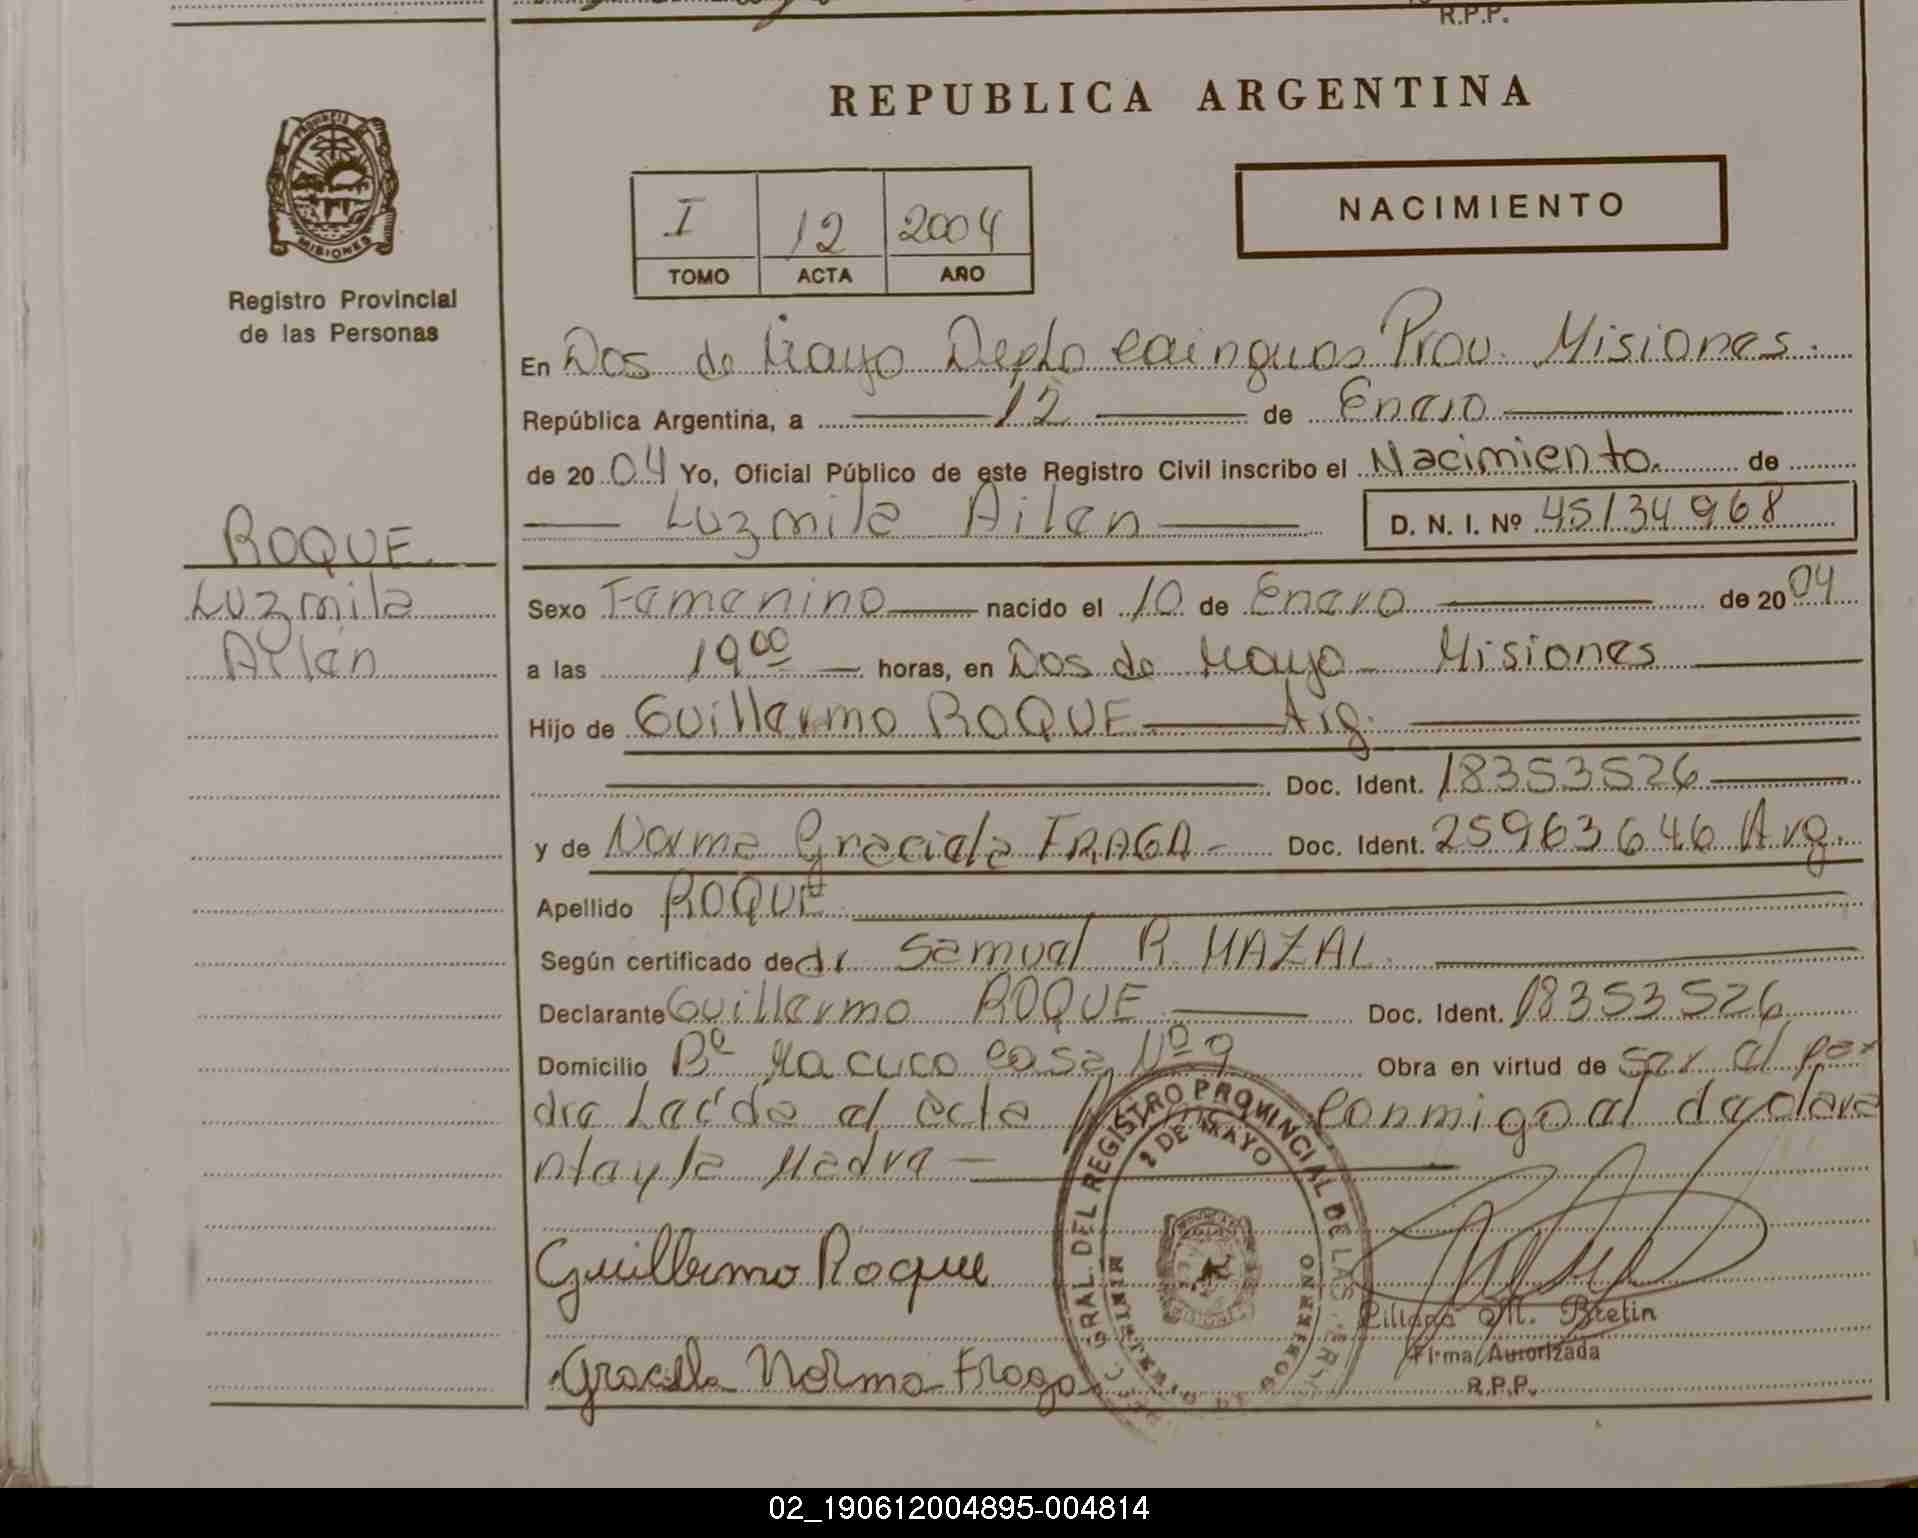 R.P.P.
REPUBLICA ARGENTINA
PROVINCIA DE
MISIONES
Registro Provincial
de las Personas
I 12 2004
TOMO ACTA AÑO
NACIMIENTO
En Dos de Mayo Depto Cainguas Prov. Misiones.
República Argentina, a 12 de Enero
de 2004 Yo, Oficial Público de este Registro Civil inscribo el Nacimiento. de
Luzmila Ailen D. N. I. Nº 45134968
ROQUE
Luzmila
Ailen
Sexo Femenino nacido el 10 de Enero de 2004
a las 19 00 horas, en Dos de Mayo - Misiones
Hijo de Guillermo ROQUE Arg.
Doc. Ident. 18353526
y de Norma Graciela FRAGA - Doc. Ident. 25963646 Arg.
Apellido ROQUE
Según certificado de dr Samuel R. MAZAL
Declarante Guillermo ROQUE Doc. Ident. 18353526
Domicilio Bº Macuco Casa Nº 9 Obra en virtud de ser el pa
dre Leída el acta conmigo el declara
nte y la Madre -
Guillermo Roque
Graciela Norma Fraga
GRAL. DEL REGISTRO PROVINCIAL DE LAS
2 DE MAYO
M. Bretin
Firma Autorizada
R.P.P.
02_190612004895-004814